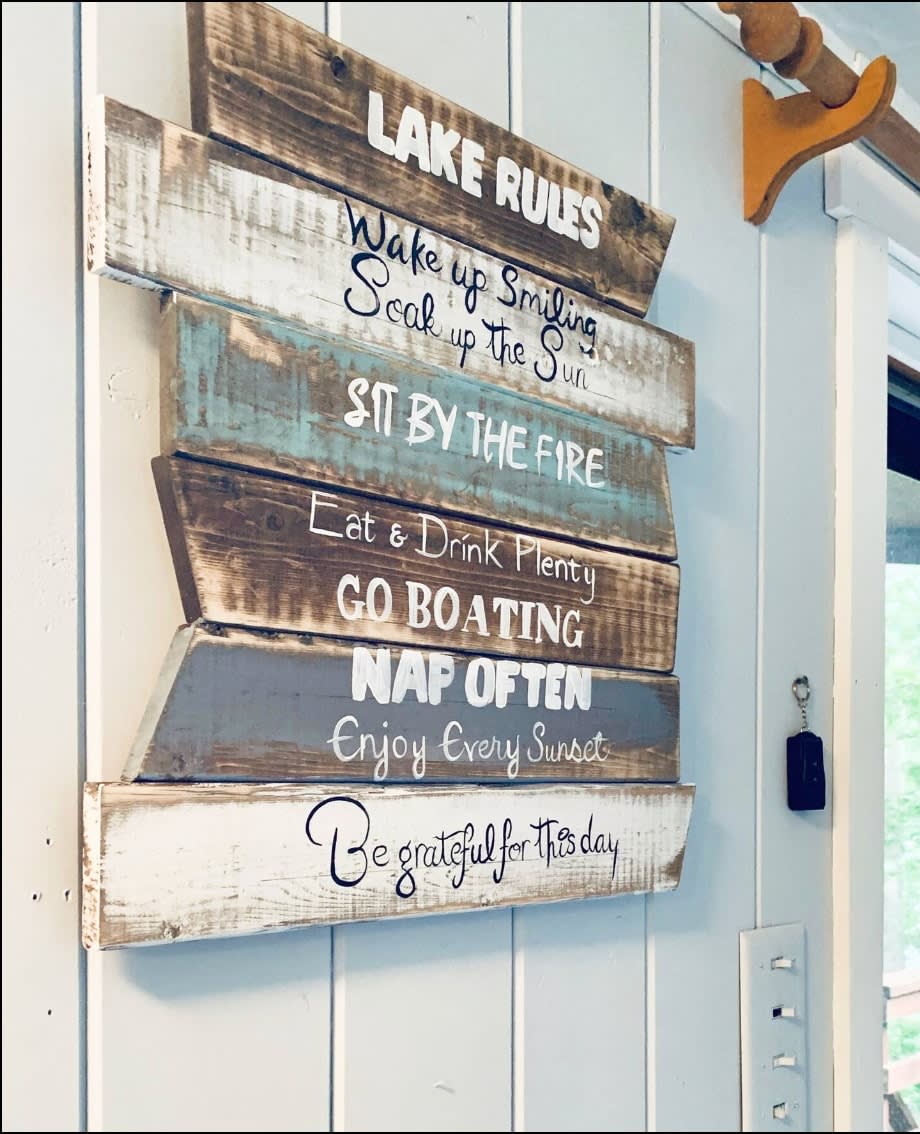 LAKE RULES
Wake up Smiling
Soak up the Sun
SIT BY THE FIRE
Eat & Drink Plenty
GO BOATING
NAP OFTEN
Enjoy Every Sunset
Be grateful for this day